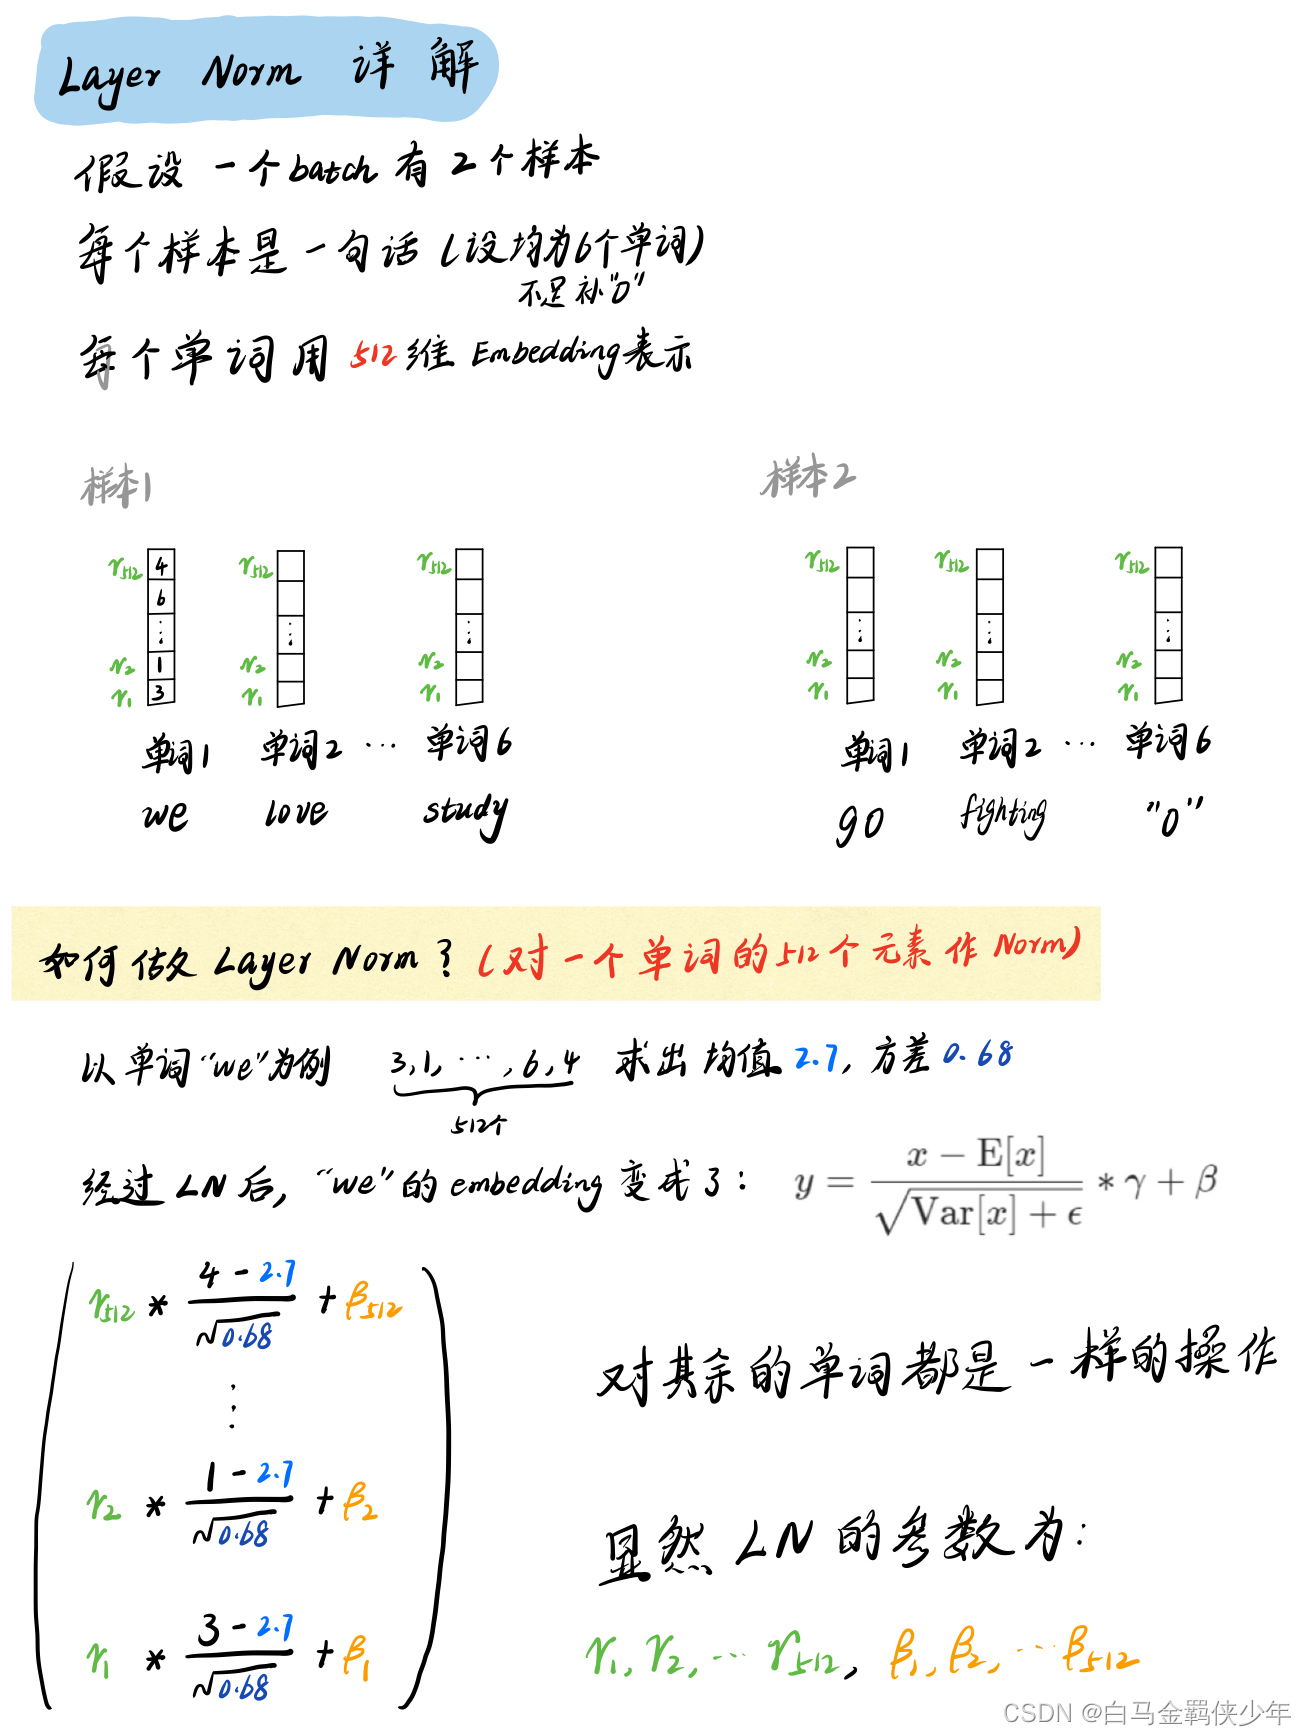 Layer Norm 详解
假设一个batch有2个样本
每个样本是一句话(设均为6个单词)
不足补"0"
每个单词用512维Embedding表示
样本1
样本2
γ512 4 γ512 γ512 γ512 γ512 γ512
6
⋮ ⋮ ⋮ ⋮ ⋮ ⋮
γ2 1 γ2 γ2 γ2 γ2 γ2
γ1 3 γ1 γ1 γ1 γ1 γ1
单词1 单词2 … 单词6 单词1 单词2 … 单词6
we love study go fighting "0"
如何做Layer Norm?(对一个单词的512个元素作Norm)
以单词"we"为例 3,1,…,6,4 求出均值2.7,方差0.68
512个
经过LN后,"we"的embedding变成了: y = (x − E[x]) / √(Var[x] + ϵ) * γ + β
γ512 * (4 − 2.7) / √0.68 + β512
⋮
γ2 * (1 − 2.7) / √0.68 + β2
γ1 * (3 − 2.7) / √0.68 + β1
对其余的单词都是一样的操作
显然LN的参数为:
γ1,γ2,…γ512,β1,β2,…β512
CSDN @白马金羁侠少年